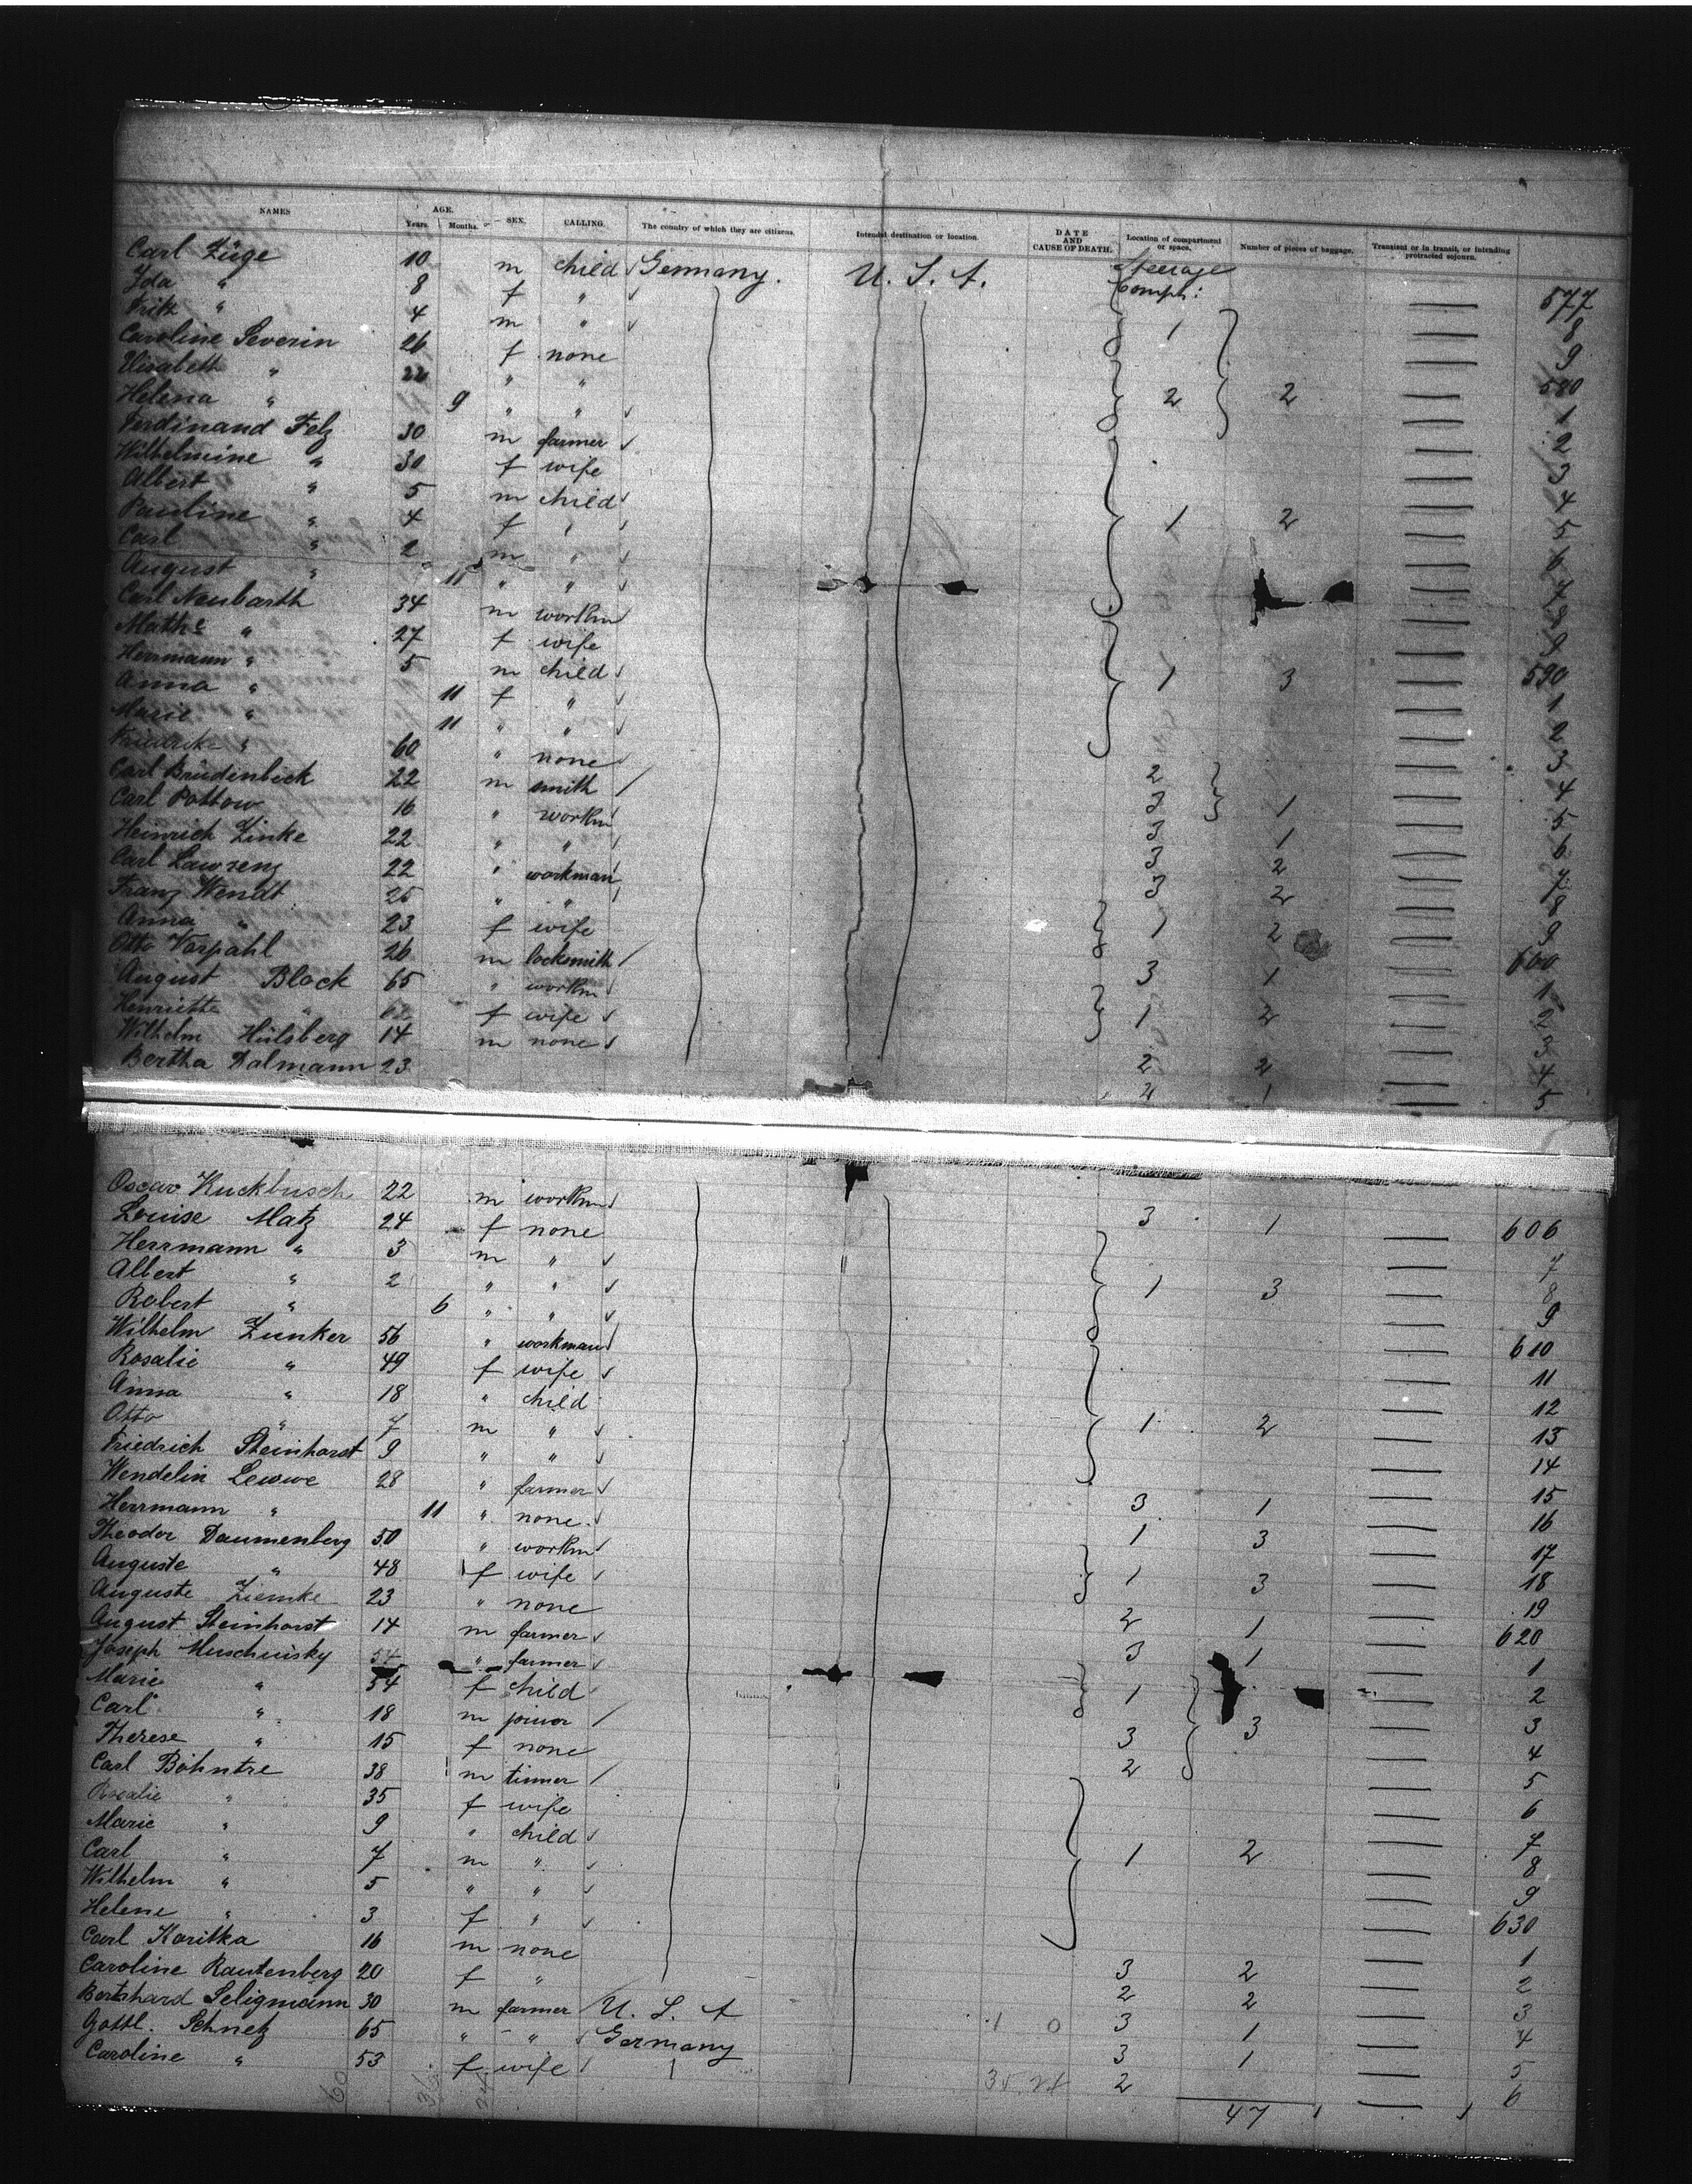 NAMES AGE. SEX. CALLING. The country of which they are citizens. Intended destination or location. DATE AND CAUSE OF DEATH. Location of compartment or space. Number of pieces of baggage. Transient or in transit, or intending protracted sojourn.
Years. Months.
Carl Züge 10 m child Germany. U. S. A. Steerage Compt: — 577
Ida " 8 f " — 8
Fritz " 4 m " 1 — 9
Caroline Severin 26 f none — 580
Elisabeth " 22 " " 2 2 — 1
Helena " 9 " " — 2
Ferdinand Felz 30 m farmer — 3
Wilhelmine " 30 f wife — 4
Albert " 5 m child — 5
Pauline " 4 f " 1 2 — 6
Carl " 2 m " — 7
August " 11 " " — 8
Carl Neubarth 34 m workm — 9
Mathe " 27 f wife — 590
Herrmann " 5 m child 1 3 — 1
Anna " 11 f " — 2
Marie " 11 " " — 3
Friedrike " 60 " none — 4
Carl Brüdenbick 22 m smith 2 — 5
Carl Pottow 16 " workm 3 1 — 6
Heinrich Zinke 22 " " 3 1 — 7
Carl Lawrenz 22 " workman 3 2 — 8
Franz Wendt 25 " " 3 2 — 9
Anna " 23 f wife 1 2 — 600
Otto Vospahl 26 m locksmith 3 1 — 1
August Block 65 " workm — 2
Henriette " 62 f wife 1 2 — 3
Wilhelm Hülsberg 14 m none 2 2 — 4
Bertha Dalmann 23 2 1 — 5
Oscar Kuckbusch 22 m workm 3 1 — 606
Louise Matz 24 f none — 7
Herrmann " 3 m " — 8
Albert " 2 " " 1 3 — 9
Robert " 6 " " — 610
Wilhelm Zunker 56 " workman — 11
Rosalie " 49 f wife — 12
Anna " 18 " child — 13
Otto " 7 m " 1 2 — 14
Friedrich Steinhorst 9 " " — 15
Wendelin Lewwe 28 " farmer 3 1 — 16
Herrmann " 11 " none 1 3 — 17
Theodor Daumenberg 50 " workm — 18
Auguste " 48 f wife 1 3 — 19
Auguste Ziemke 23 " none 2 1 — 620
August Steinhorst 14 m farmer 3 1 — 1
Joseph Muschinsky 54 " farmer — 2
Marie " 54 f child 1 — 3
Carl " 18 m joiner 3 3 — 4
Therese " 15 f none 2 — 5
Carl Böhntre 38 m tinner — 6
Rosalie " 35 f wife — 7
Marie " 9 " child — 8
Carl " 7 m " 1 2 — 9
Wilhelm " 5 " " — 630
Helene " 3 f " — 1
Carl Koritka 16 m none 3 2 — 2
Caroline Rautenberg 20 f " 2 2 — 3
Bernhard Seligmann 30 m farmer U. S. A 3 1 — 4
Gottl. Schnetz 65 " " Germany 3 1 — 5
Caroline " 53 f wife 2 — 6
60 24 47